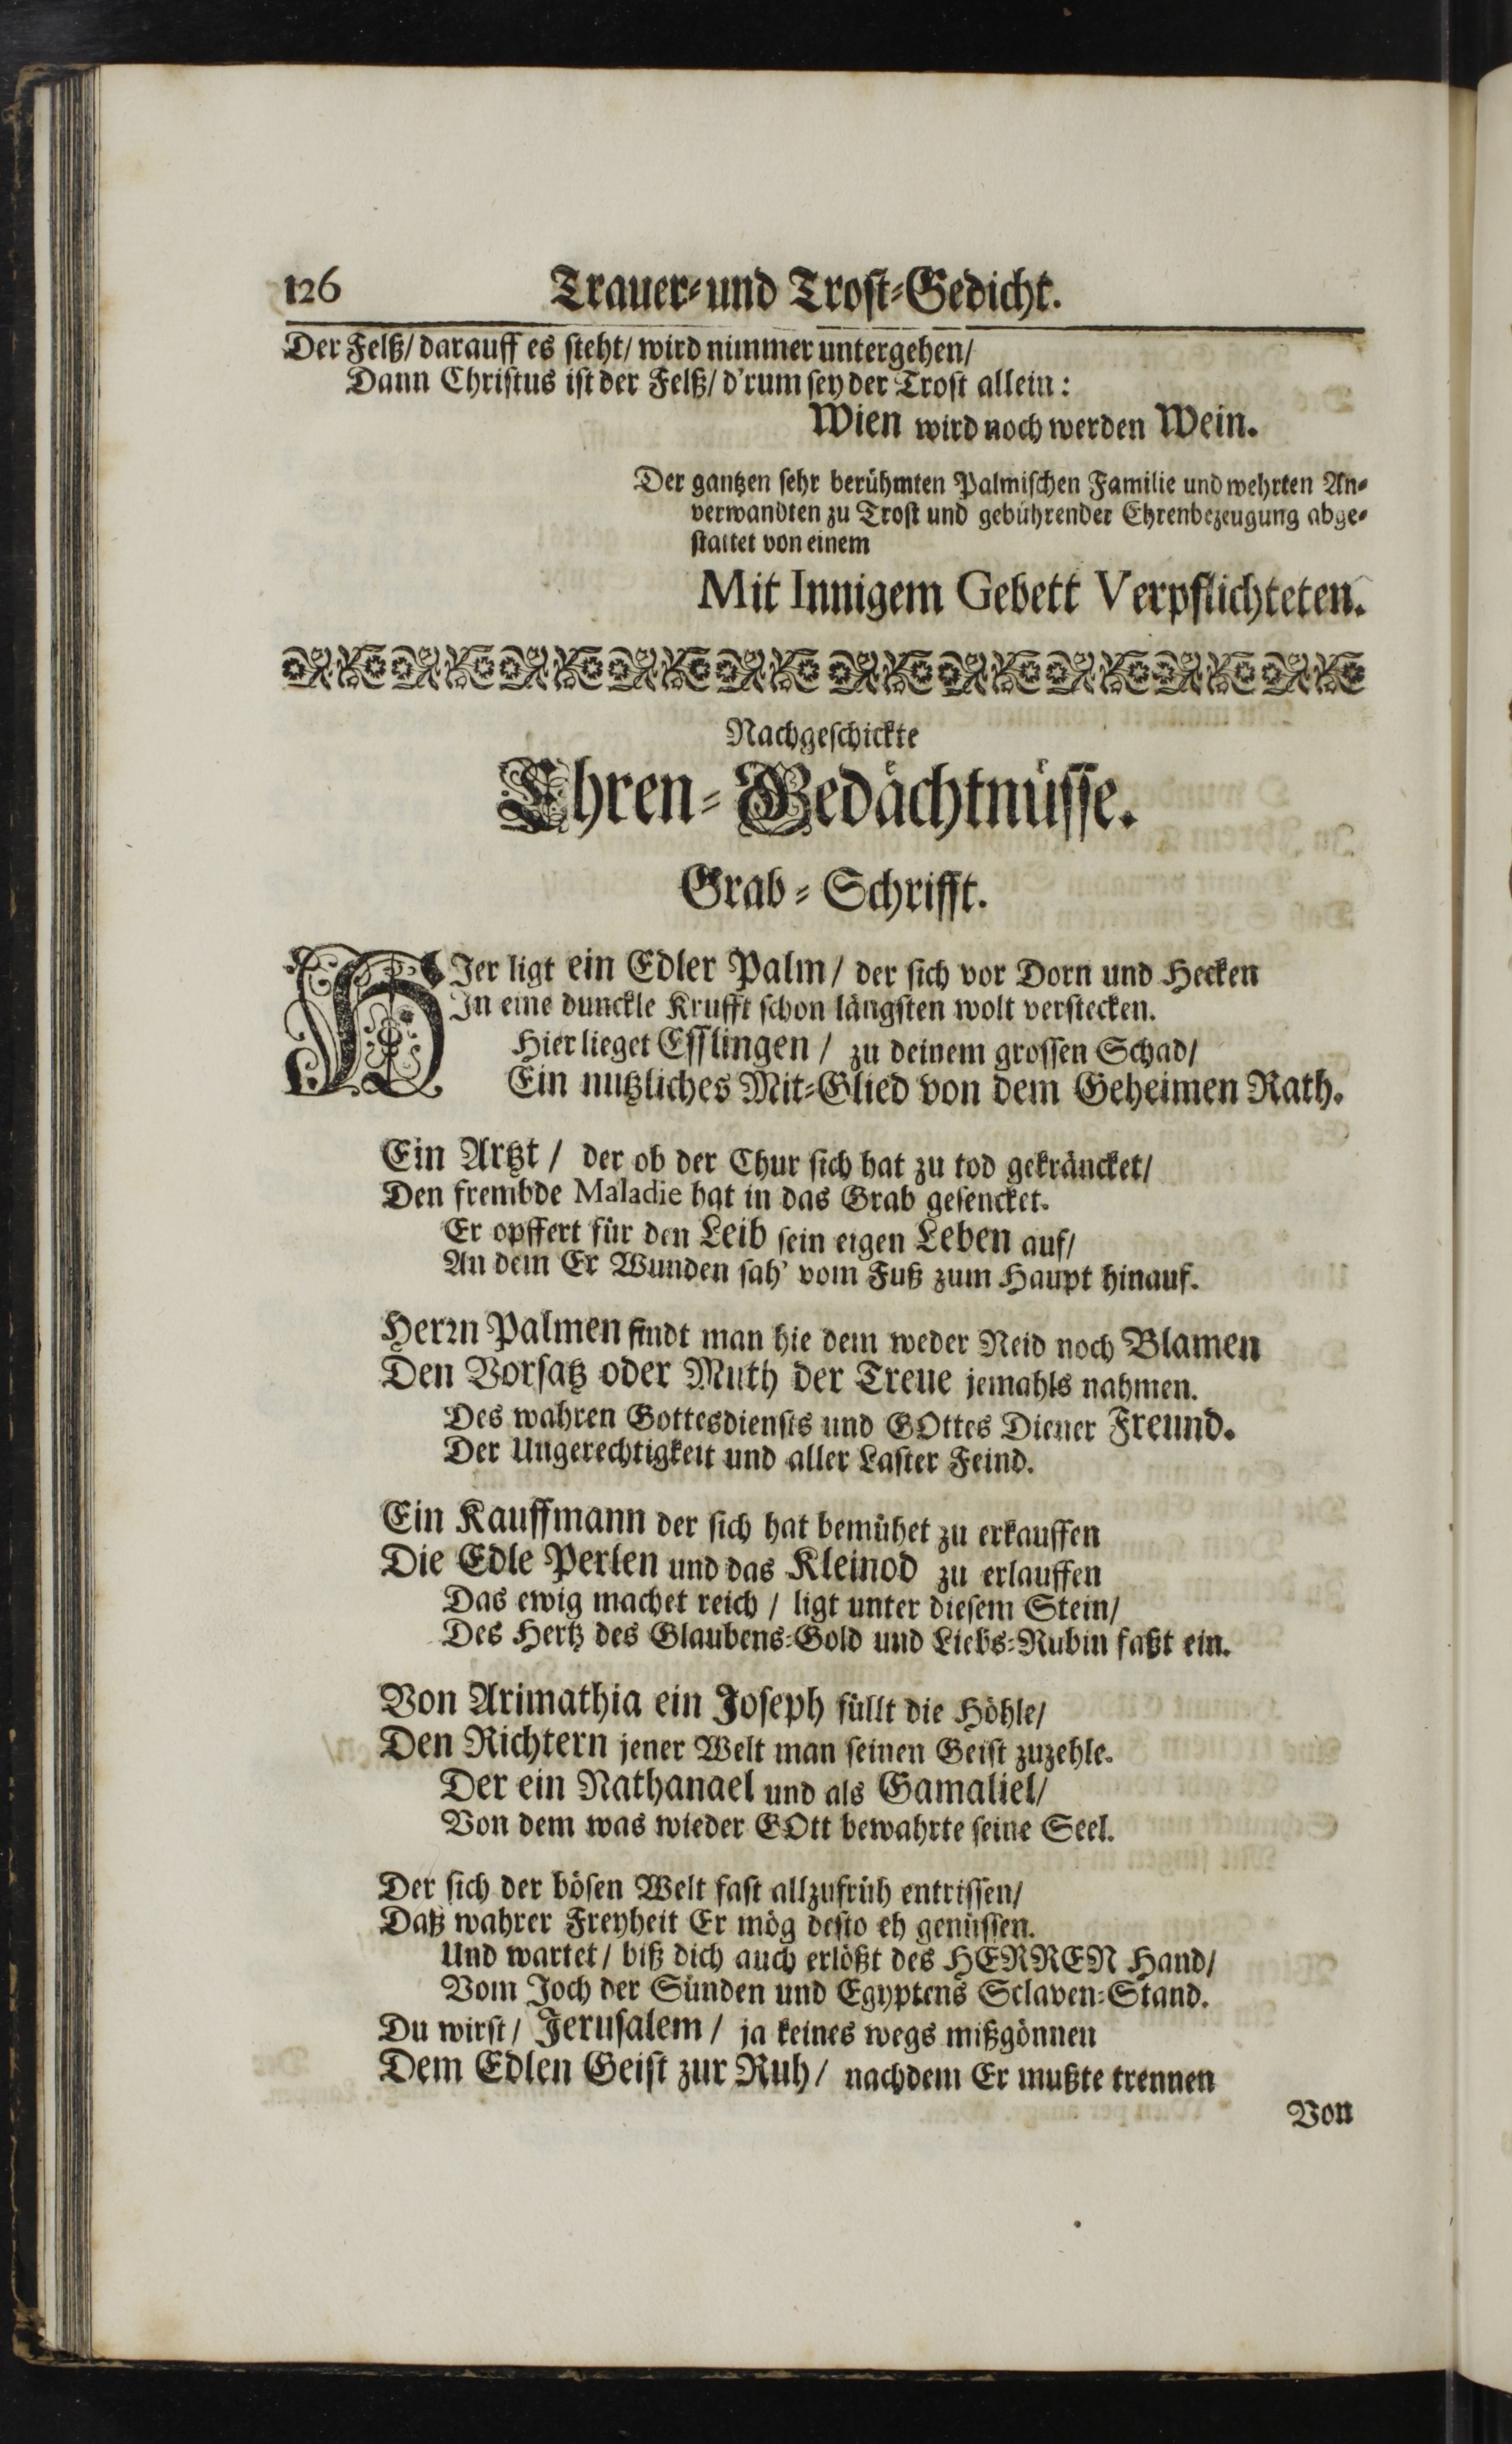 126 Trauer-und Trost-Gedicht.
Der Felß/ darauff es steht/ wird nimmer untergehen/
Dann Christus ist der Felß/ d'rum sey der Trost allein:
Wien wird noch werden Wein.
Der gantzen sehr berühmten Palmischen Familie und wehrten An-
verwandten zu Trost und gebührender Ehrenbezeugung abge-
stattet von einem
Mit Innigem Gebett Verpflichteten.
Nachgeschickte
Ehren-Gedächtnüsse.
Grab-Schrifft.
HJer ligt ein Edler Palm/ der sich vor Dorn und Hecken
In eine dunckle Krufft schon längsten wolt verstecken.
Hier lieget Esslingen / zu deinem grossen Schad/
Ein nutzliches Mit-Glied von dem Geheimen Rath.
Ein Artzt / der ob der Chur sich hat zu tod gekräncket/
Den frembde Maladie hat in das Grab gesencket.
Er opffert für den Leib sein eigen Leben auf/
An dem Er Wunden sah' vom Fuß zum Haupt hinauf.
Herrn Palmen findt man hie dem weder Neid noch Blamen
Den Vorsatz oder Muth der Treue jemahls nahmen.
Des wahren Gottesdiensts und GOttes Diener Freund.
Der Ungerechtigkeit und aller Laster Feind.
Ein Kauffmann der sich hat bemühet zu erkauffen
Die Edle Perlen und das Kleinod zu erlauffen
Das ewig machet reich / ligt unter diesem Stein/
Des Hertz des Glaubens-Gold und Liebs-Rubin faßt ein.
Von Arimathia ein Joseph füllt die Höhle/
Den Richtern jener Welt man seinen Geist zuzehle.
Der ein Nathanael und als Gamaliel/
Von dem was wieder GOtt bewahrte seine Seel.
Der sich der bösen Welt fast allzufrüh entrissen/
Daß wahrer Freyheit Er mög desto eh genüssen.
Und wartet / biß dich auch erlößt des HERREN Hand/
Vom Joch der Sünden und Egyptens Sclaven-Stand.
Du wirst/ Jerusalem / ja keines wegs mißgönnen
Dem Edlen Geist zur Ruh/ nachdem Er mußte trennen
Von